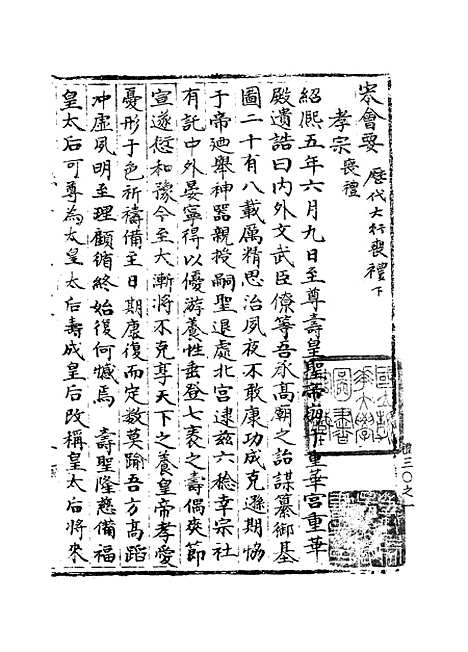 宋會要 歷代大行喪禮下
孝宗喪禮
紹熙五年六月九日至尊壽皇聖帝崩于重華宮重華
殿遺誥曰內外文武臣僚等吾承高廟之詒謀纂御基
圖二十有八載厲精思治夙夜不敢康功成克遜期恊
于帝廼舉神器親授嗣聖退處北宮逮茲六稔幸宗社
有託中外晏寧得以優游養性垂登七袠之壽偶爽節
宣遂愆和豫今至大漸將不克享天下之養皇帝孝愛
憂形于色祈禱備至日期康復而定數莫踰吾方高蹈
冲虛夙明至理顧循終始復何憾焉 壽聖隆慈備福
皇太后可尊為太皇太后壽成皇后改稱皇太后將來
禮三〇之一